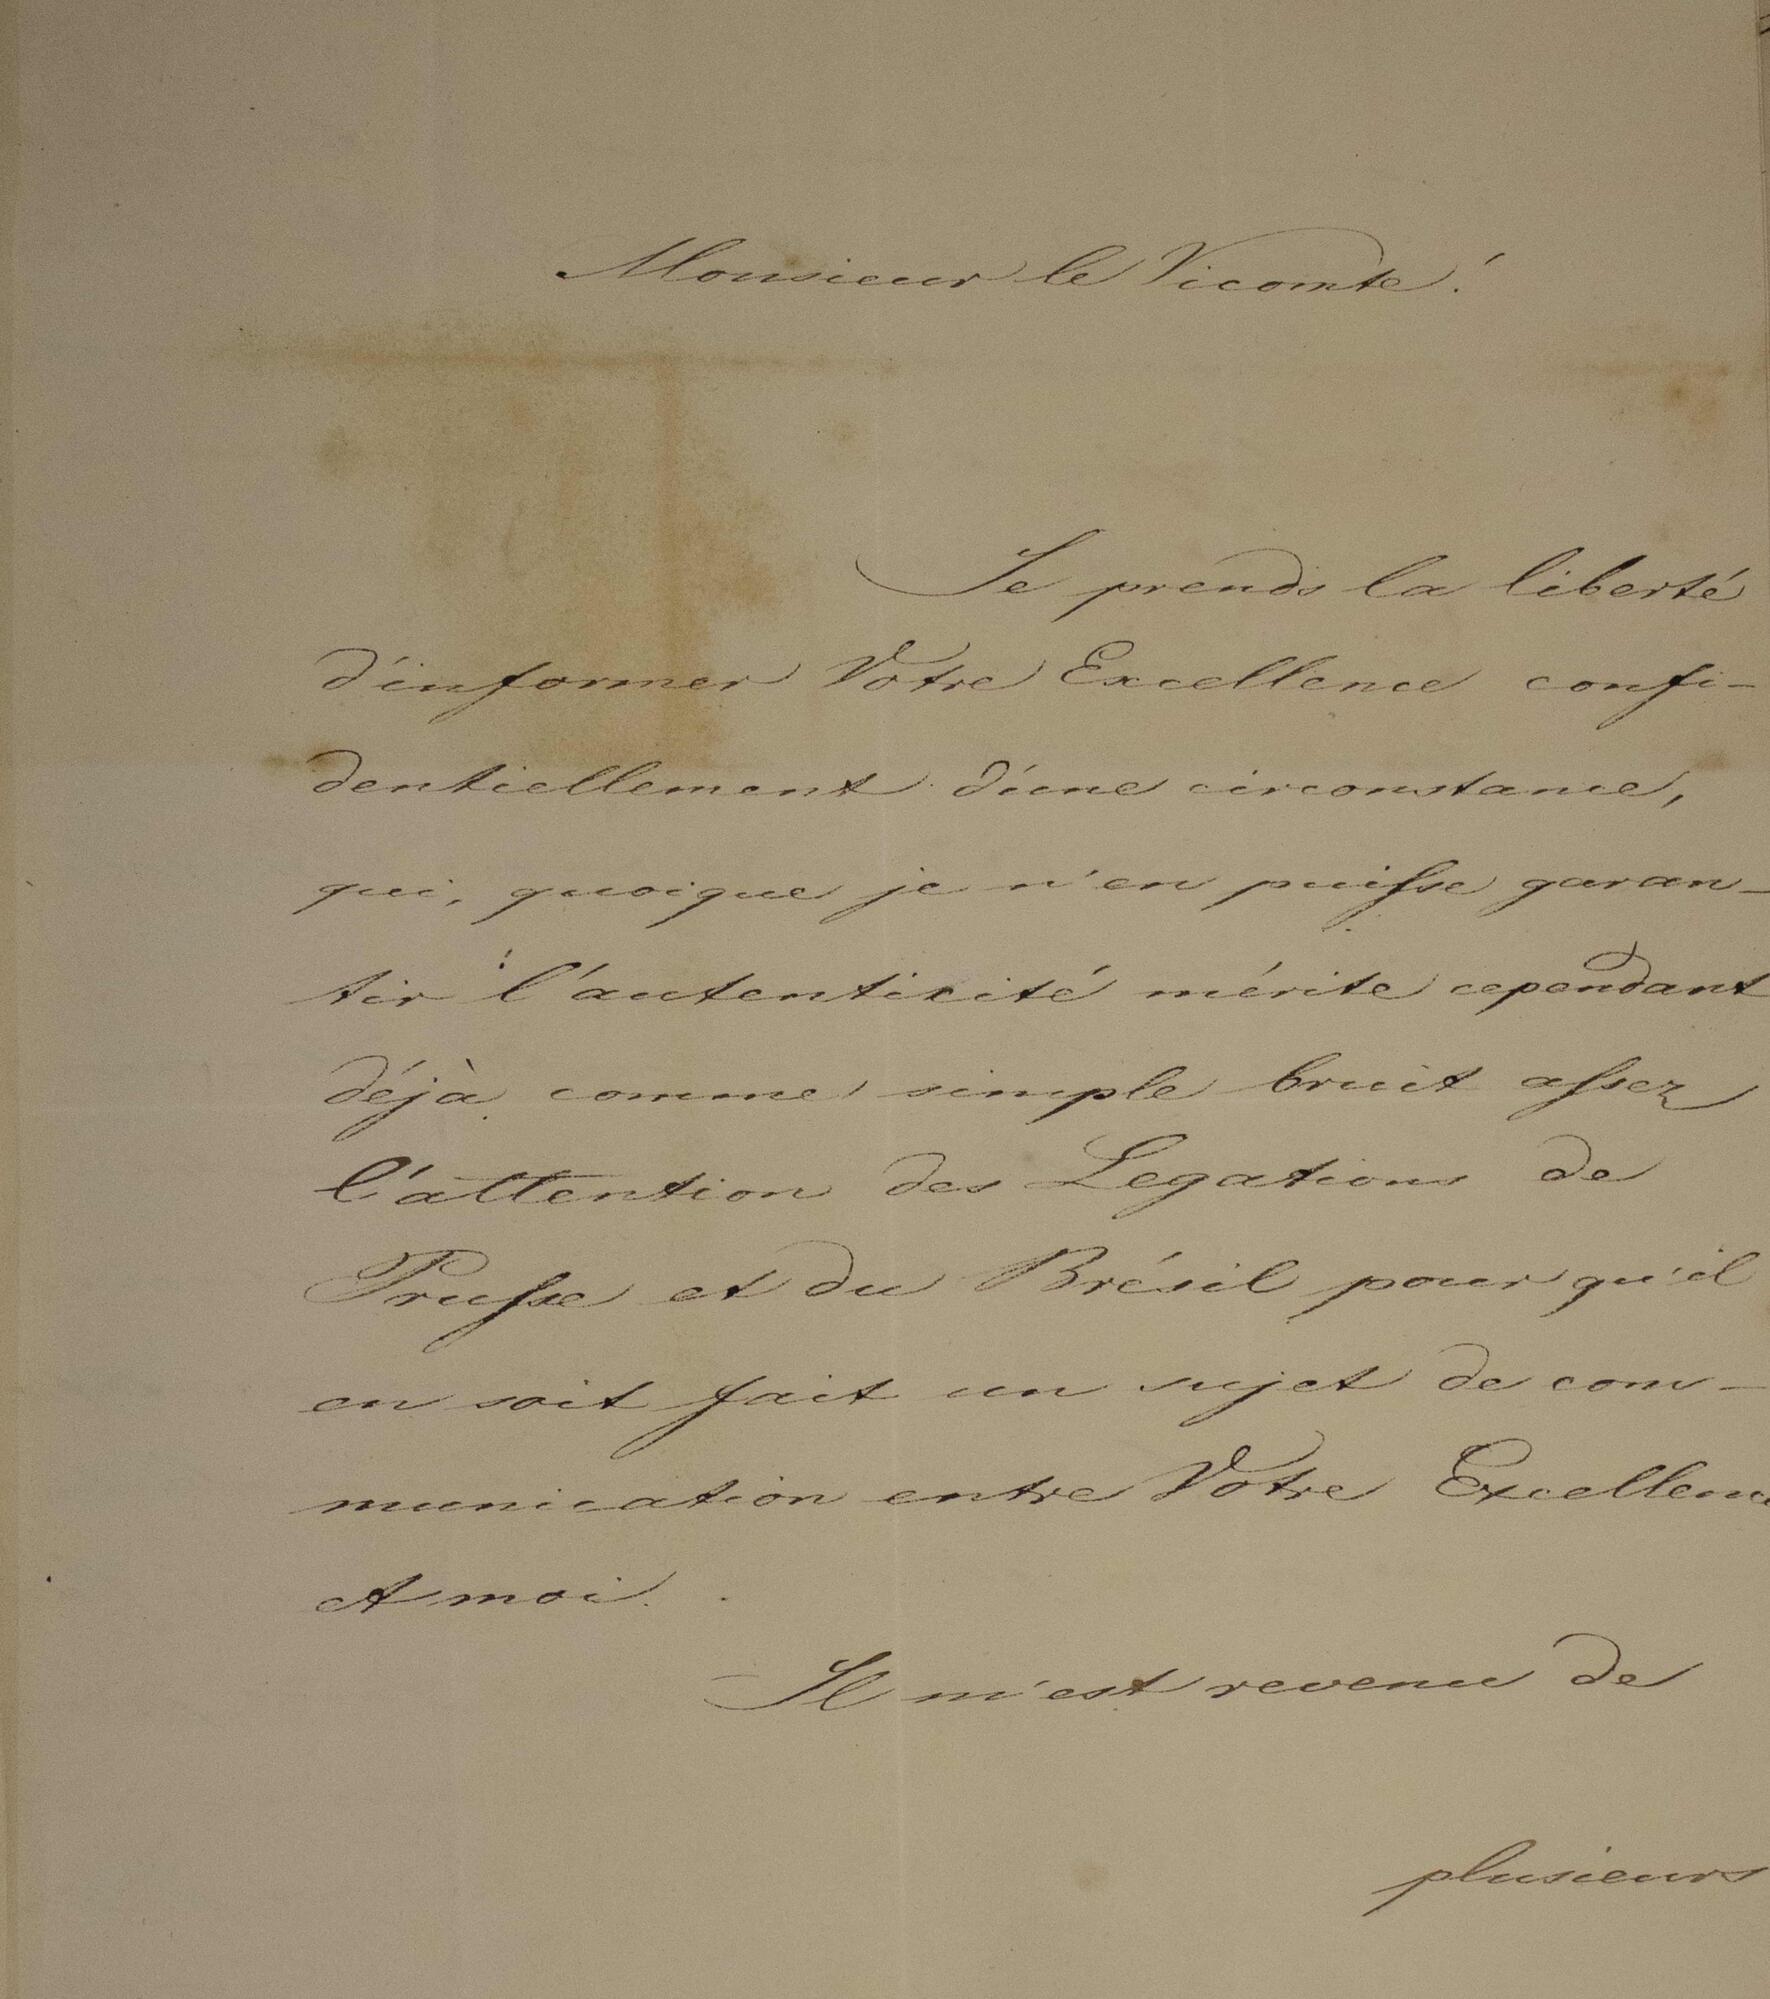 Monsieur le Vicomte!
Je prends la liberté
d'informer Votre Excellence confi-
dentiellement d'une circonstance,
qui, quoique je n'en puisse garan-
tir l'autenticité mérite cependant
déjà comme simple bruit assez
l'attention des Legations de
Prusse et du Brésil pour qu'il
en soit fait un sujet de com-
munication entre Votre Excellence
et moi.
Il m'est revenu de
plusieurs